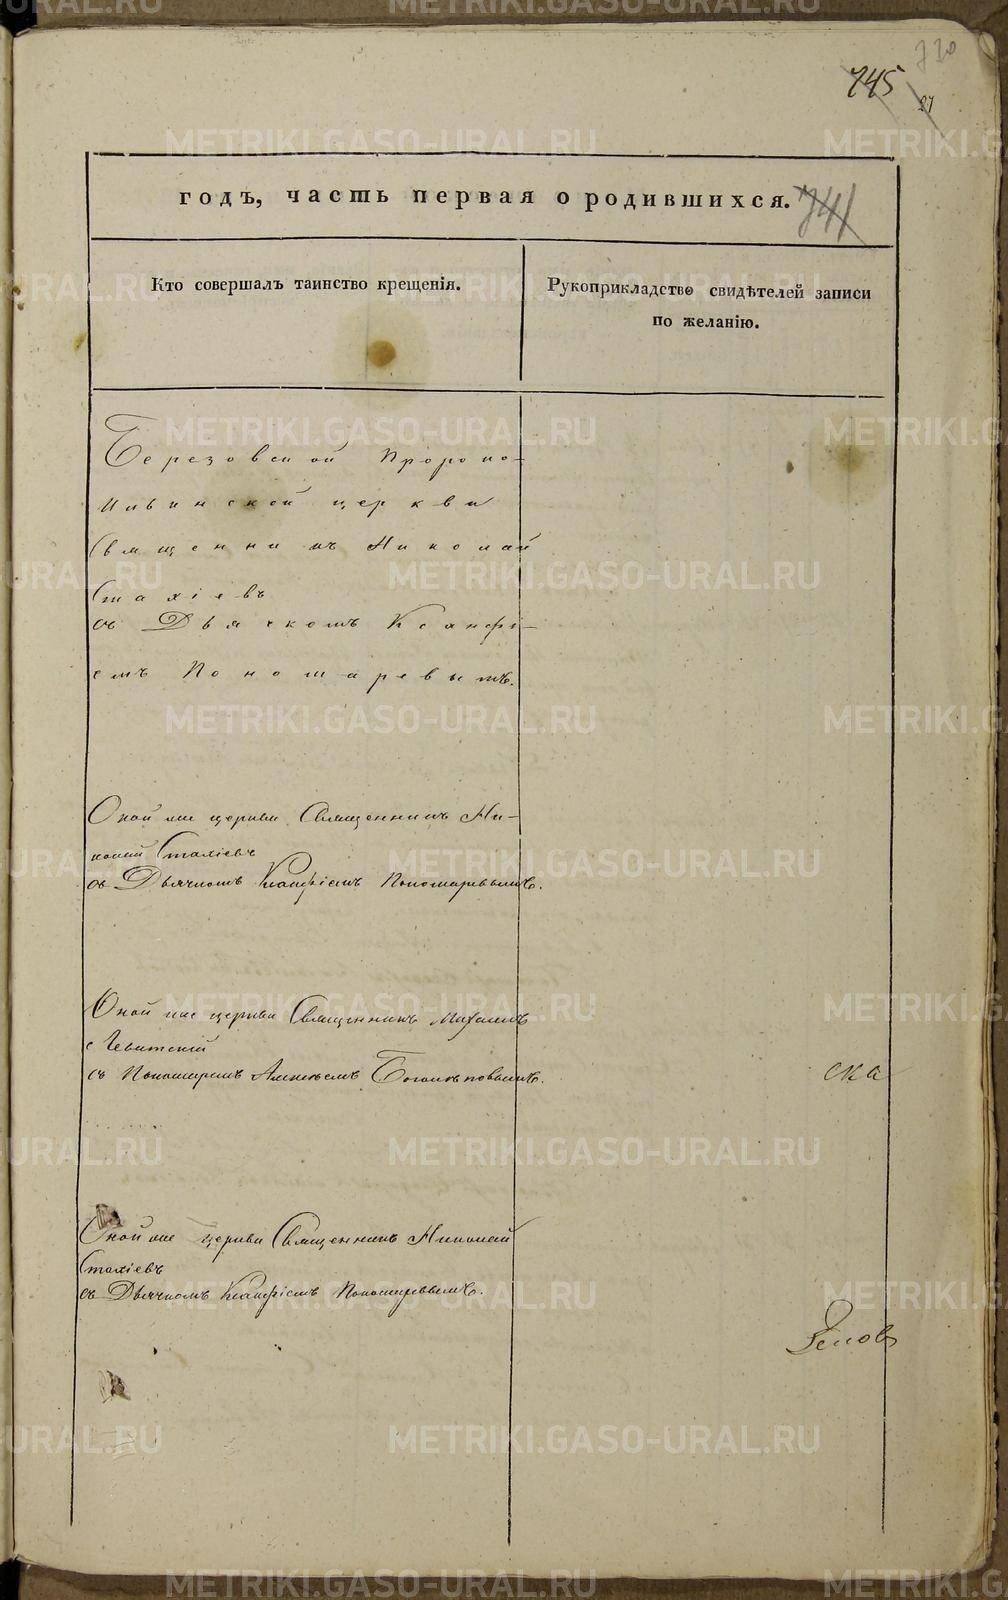 730
745
27
годъ, часть первая о родившихся.
741
Кто совершалъ таинство крещенія.
Рукоприкладство свидѣтелей записи
по желанію.
Березовской Пророко-
Ильинской церкви
Священникъ Николай
Стахіевъ
съ Дьячкомъ Ксанфі-
емъ Пономаревымъ.
Оной же церкви Священникъ Ни-
колай Стахіевъ
съ Дьячкомъ Ксанфіемъ Пономаревымъ.
Оной же церкви Священникъ Михаилъ
съ Пономаремъ Алексѣемъ Боголѣповымъ.
ска
Оной же церкви Священникъ Николай
Стахіевъ
съ Дьячкомъ Ксанфіемъ Пономаревымъ.
METRIKI.GASO-URAL.RU